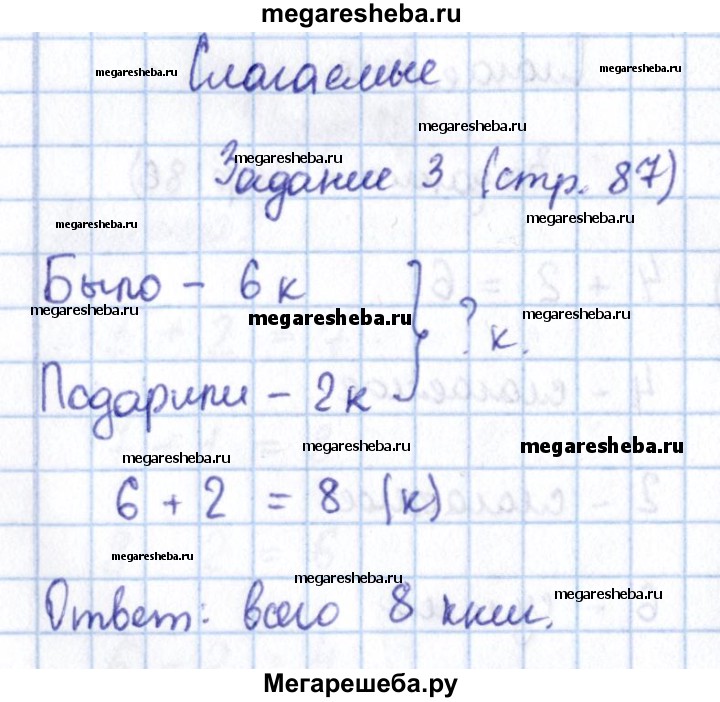 megaresheba.ru
Слагаемые
megaresheba.ru megaresheba.ru
megaresheba.ru
megaresheba.ru
Задание 3 (стр. 87)
megaresheba.ru megaresheba.ru
Было - 6 к
megaresheba.ru megaresheba.ru megaresheba.ru
? к.
Подарили - 2 к
megaresheba.ru megaresheba.ru megaresheba.ru
6 + 2 = 8 (к)
megaresheba.ru
megaresheba.ru megaresheba.ru
Ответ: всего 8 книг.
Мегарешеба.ру